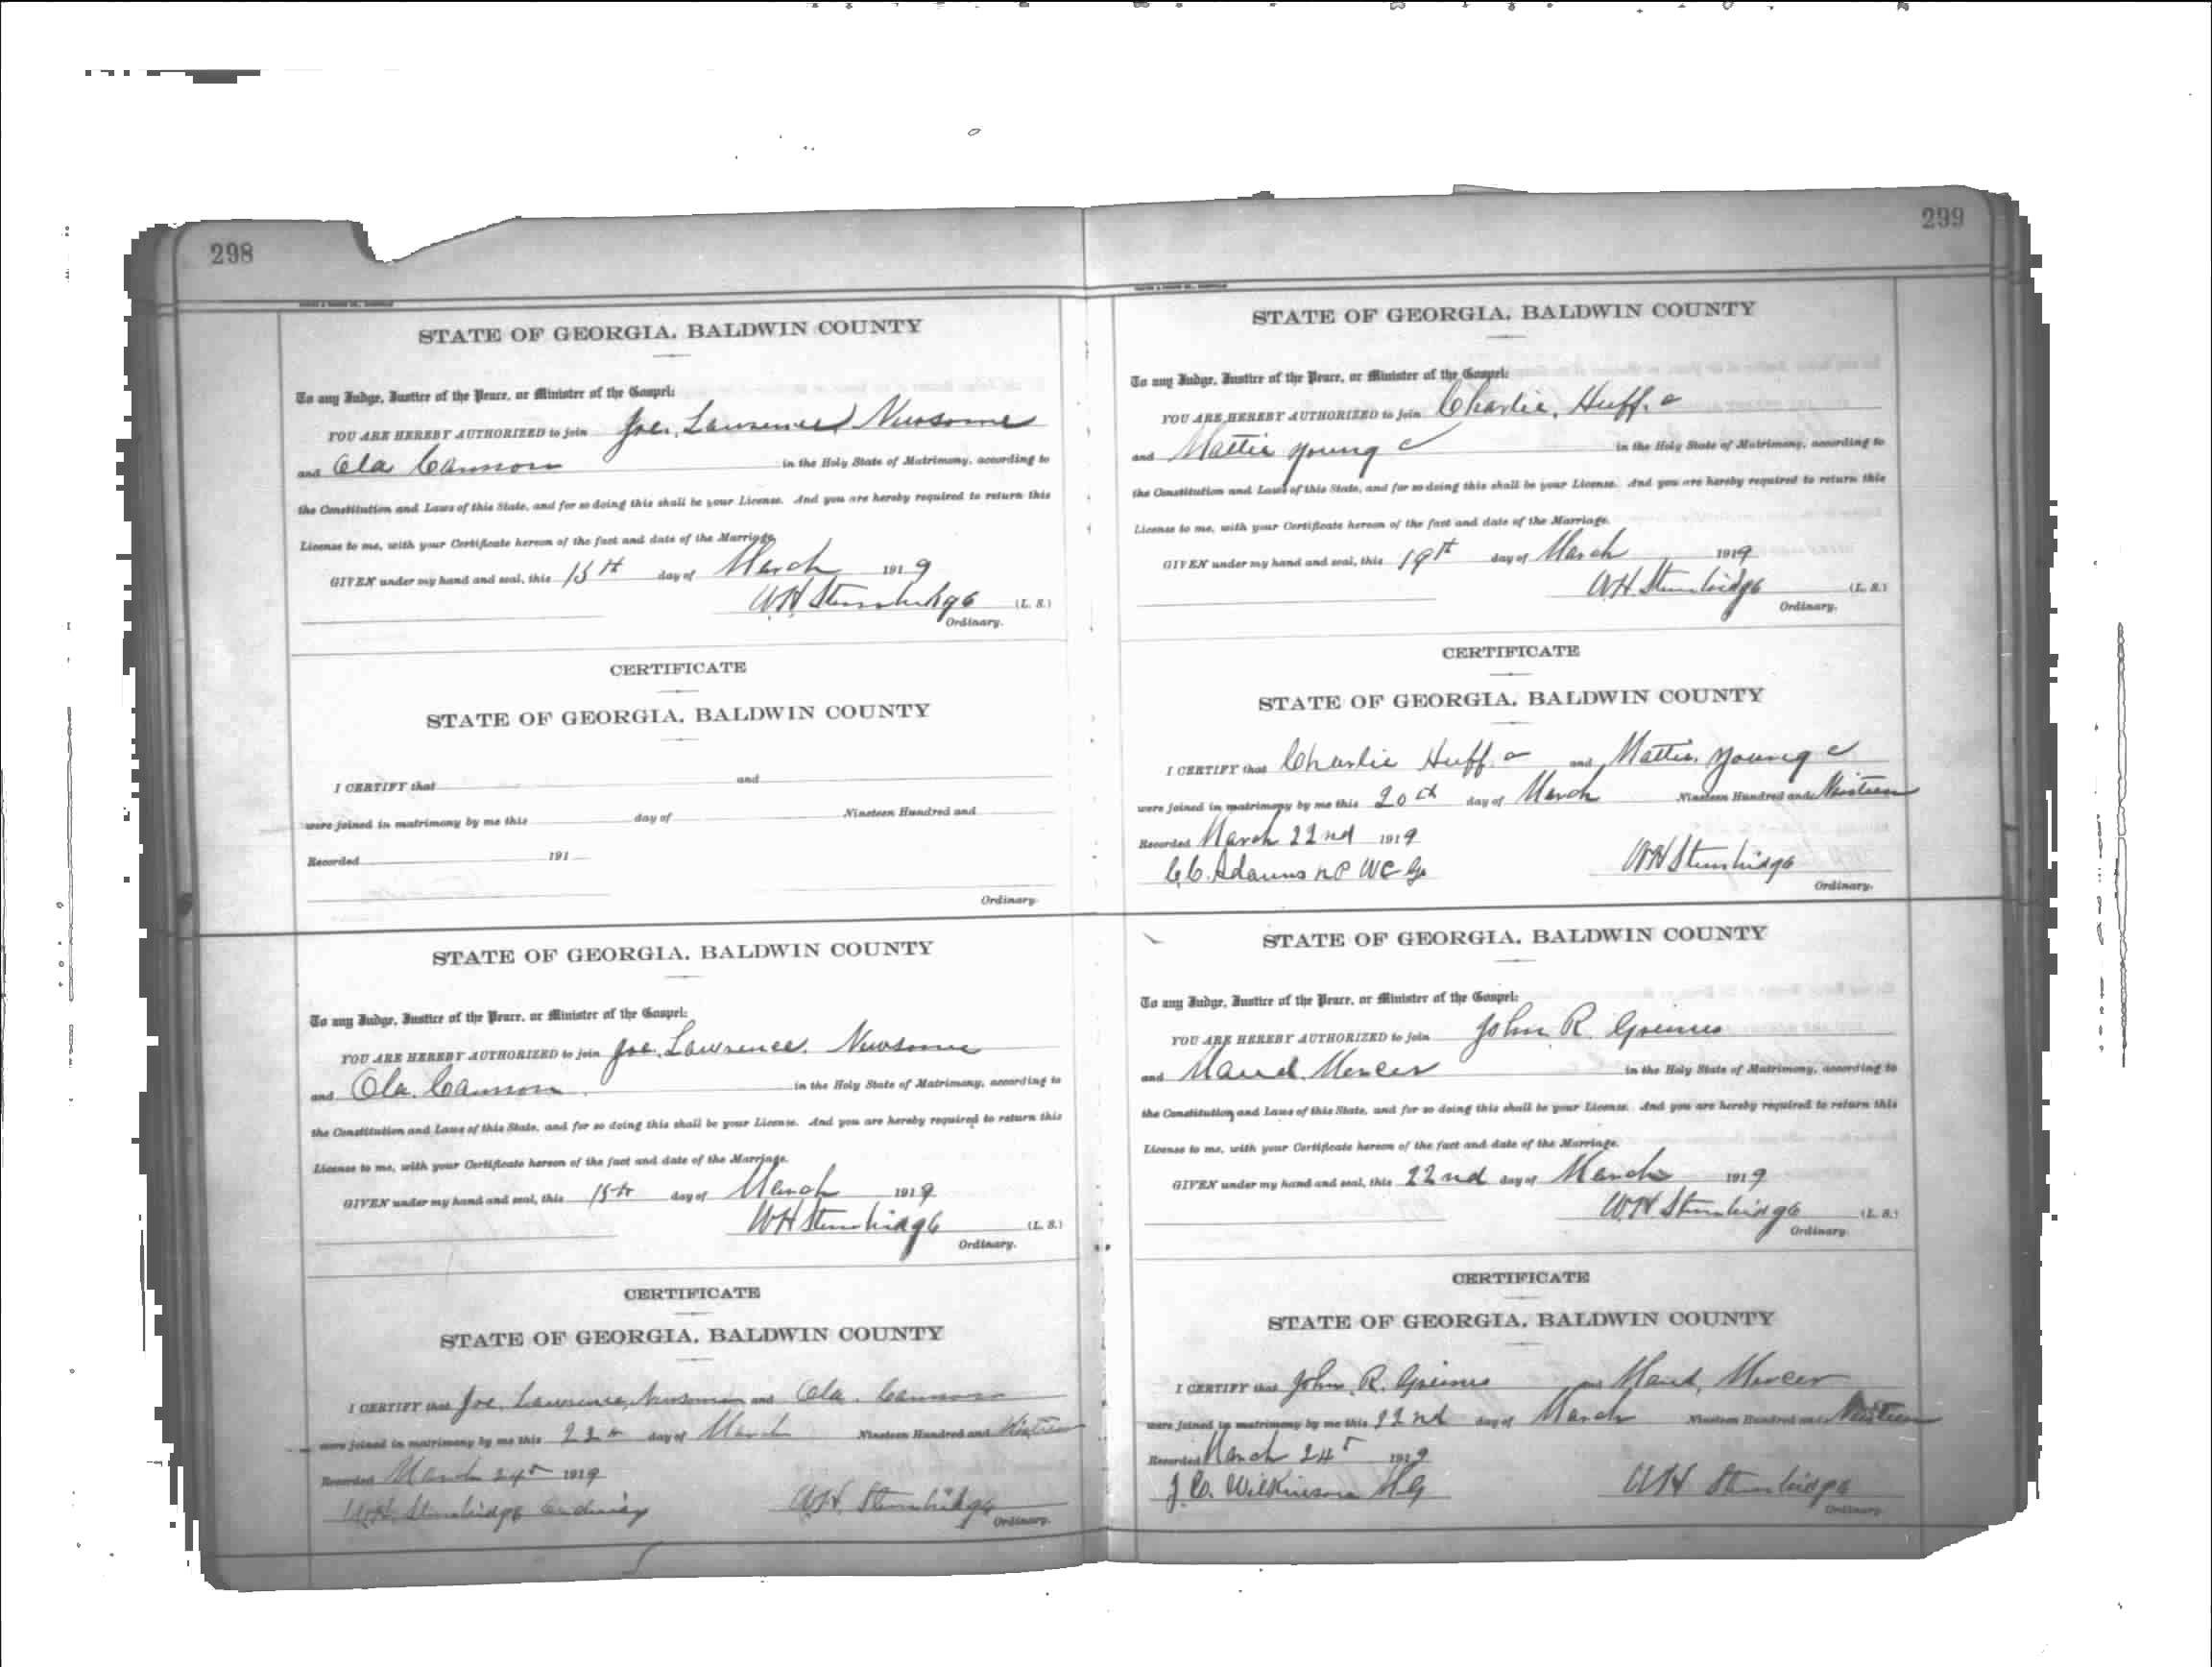 298
STATE OF GEORGIA, BALDWIN COUNTY
To any Judge, Justice of the Peace, or Minister of the Gospel:
YOU ARE HEREBY AUTHORIZED to join Joe, Lawrence Newsome
and Ola Cannon in the Holy State of Matrimony, according to
the Constitution and Laws of this State, and for so doing this shall be your License. And you are hereby required to return this
License to me, with your Certificate hereon of the fact and date of the Marriage.
GIVEN under my hand and seal, this 15th day of March 1919
W.H. Stembridge (L. S.)
Ordinary.
CERTIFICATE
STATE OF GEORGIA, BALDWIN COUNTY
I CERTIFY that and
were joined in matrimony by me this day of Nineteen Hundred and
Recorded 191
Ordinary.
STATE OF GEORGIA, BALDWIN COUNTY
To any Judge, Justice of the Peace, or Minister of the Gospel:
YOU ARE HEREBY AUTHORIZED to join Joe, Lawrence, Newsome
and Ola, Cannon in the Holy State of Matrimony, according to
the Constitution and Laws of this State, and for so doing this shall be your License. And you are hereby required to return this
License to me, with your Certificate hereon of the fact and date of the Marriage.
GIVEN under my hand and seal, this 15th day of March 1919
WH Stembridge (L. S.)
Ordinary.
CERTIFICATE
STATE OF GEORGIA, BALDWIN COUNTY
I CERTIFY that Joe, Lawrence, Newsome and Ola, Cannon
were joined in matrimony by me this day of March Nineteen Hundred and Nineteen
Recorded March 24th 1919
W.H. Stembridge Ordinary W.H. Stembridge
Ordinary.
299
STATE OF GEORGIA, BALDWIN COUNTY
To any Judge, Justice of the Peace, or Minister of the Gospel:
YOU ARE HEREBY AUTHORIZED to join Charlie, Huff. c
and Mattie Young c in the Holy State of Matrimony, according to
the Constitution and Laws of this State, and for so doing this shall be your License. And you are hereby required to return this
License to me, with your Certificate hereon of the fact and date of the Marriage.
GIVEN under my hand and seal, this 19th day of March 1919
W.H. Stembridge (L. S.)
Ordinary.
CERTIFICATE
STATE OF GEORGIA, BALDWIN COUNTY
I CERTIFY that Charlie Huff. c and Mattie, Young c
were joined in matrimony by me this 20th day of March Nineteen Hundred and Nineteen
Recorded March 22nd 1919
C.C. Adams NP WC Ga WH Stembridge
Ordinary.
STATE OF GEORGIA, BALDWIN COUNTY
To any Judge, Justice of the Peace, or Minister of the Gospel:
YOU ARE HEREBY AUTHORIZED to join John R. Grimes
and Maud, Mercer in the Holy State of Matrimony, according to
the Constitution and Laws of this State, and for so doing this shall be your License. And you are hereby required to return this
License to me, with your Certificate hereon of the fact and date of the Marriage.
GIVEN under my hand and seal, this 22nd day of March 1919
W.H. Stembridge (L. S.)
Ordinary.
CERTIFICATE
STATE OF GEORGIA, BALDWIN COUNTY
I CERTIFY that John, R. Grimes and Maud, Mercer
were joined in matrimony by me this 22nd day of March Nineteen Hundred and Nineteen
Recorded March 24th 1919
J. C. Wilkinson WH Stembridge
Ordinary.